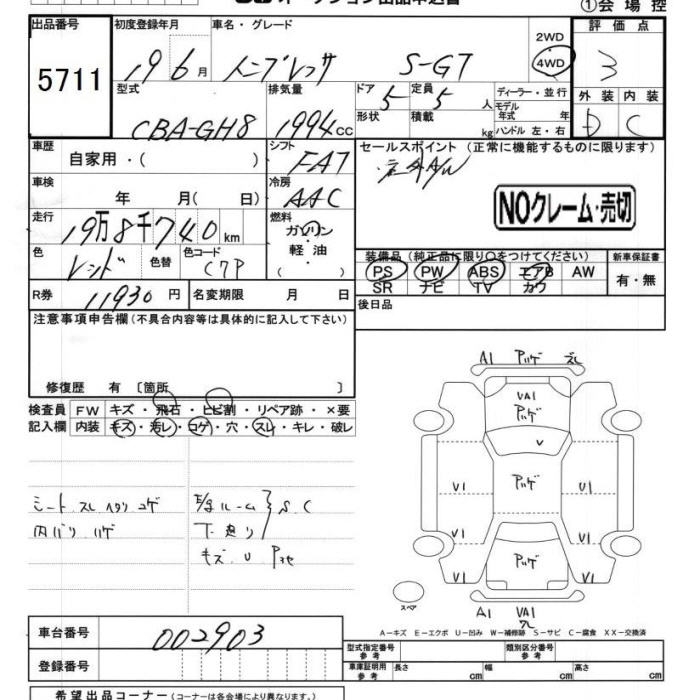 オークション出品申込書
①会場控
出品番号 初度登録年月 車名・グレード 評価点
5711 19 6月 インプレッサ S-GT 2WD 4WD 3
型式 排気量 ドア 定員 ディーラー・並行 外装 内装
CBA-GH8 1994cc 5 5人 モデル年式 年 D C
形状 積載 kg ハンドル 左・右
車歴 自家用・( ) シフト FAT セールスポイント (正常に機能するものに限ります)
車検 年 月( 日) 冷房 AAC
NOクレーム・売切
走行 19万8千740km 燃料 ガソリン 軽・油 ( )
色 レッド 色替 色コード C7P
装備品 (純正品に限り○をつけてください) 新車保証書
PS PW ABS エアB AW 有・無
SR ナビ TV カワ
R券 11930円 名変期限 月 日 後日品
注意事項申告欄(不具合内容等は具体的に記入して下さい)
修復歴 有 〔箇所 〕
検査員 FW キズ・飛石・ヒビ割・リペア跡・×要
記入欄 内装 キズ・汚レ・コゲ・穴・スレ・キレ・破レ
シート スレ ヘタリ コゲ
内バリ ハゲ
ルーム
下廻り S、C
キズ、U
A1 ハゲ スレ
VA1
ハゲ
V
U1 ハゲ U1
V1 V1
ハゲ
V1 V1
スペア
A1 VA1
A－キズ E－エクボ U－凹み W－補修跡 S－サビ C－腐食 XX－交換済
車台番号 002903
登録番号
型式指定番号 参考 類別区分番号 参考
車庫証明用 参考 長さ cm 幅 cm 高さ cm
希望出品コーナー(コーナーは各会場により異なります。)